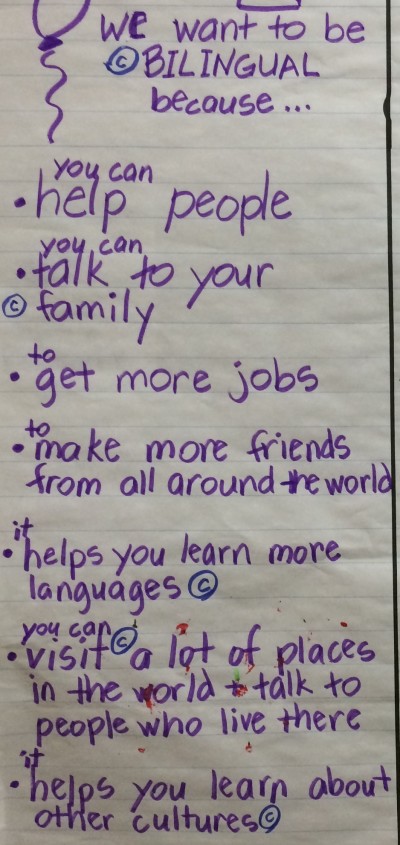 WE want to be
© BILINGUAL
because...
you can
• help people
you can
• talk to your
© family
to
• get more jobs
to
• make more friends
from all around the world
it
• helps you learn more
languages ©
you can ©
• visit a lot of places
in the world + talk to
people who live there
it
• helps you learn about
other cultures ©